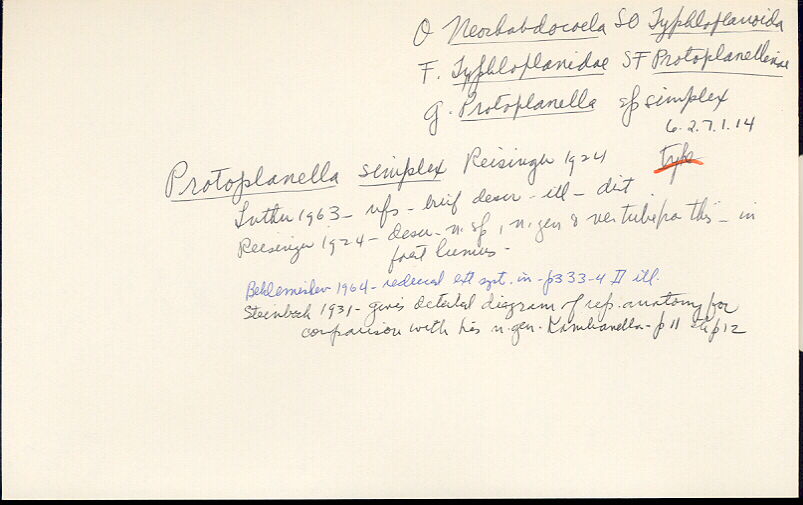 O Neorhabdocoela SO Typhloplanoida
F. Typhloplanidae SF Protoplanellinae
G. Protoplanella sp simplex
6.2.7.1.14
Protoplanella simplex Reisinger 1924 type
Luther 1963 - rfs - brief descr - ill - dist.
Reisinger 1924 - descr - n. sp, n. gen & in
forest humus -
Beklemischev 1964 - reduced ext syst. in - p333-4 II ill.
Steinbock 1931 - gives detailed diagram of rep. anatomy for
comparison with his n. gen. - p 11 p 12